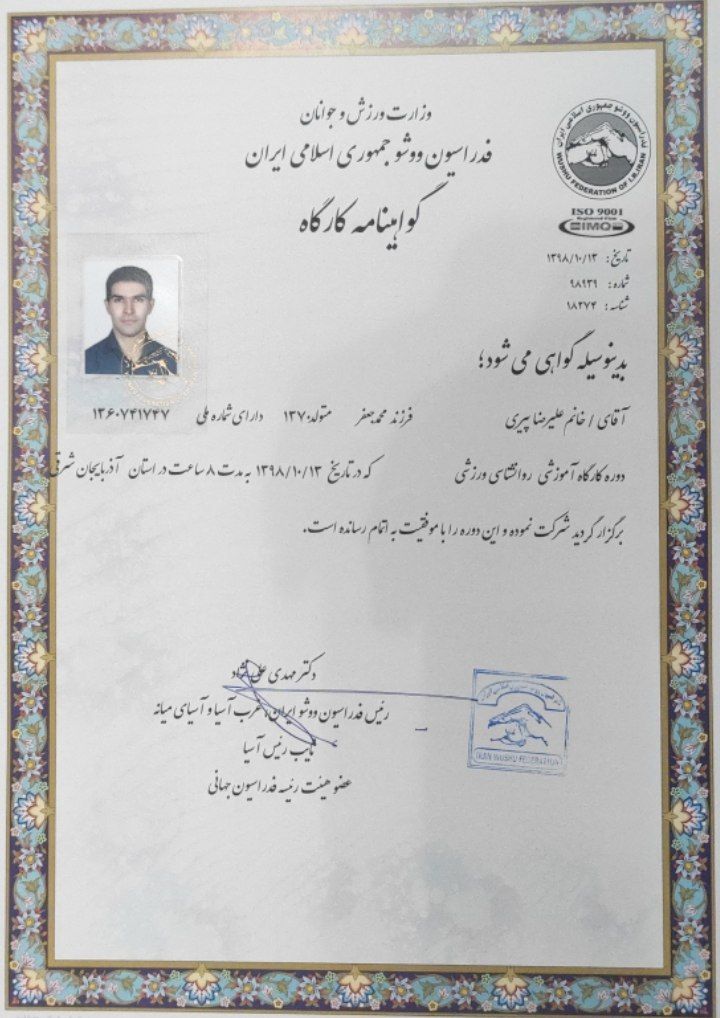 وزارت ورزش و جوانان
فدراسیون ووشو جمهوری اسلامی ایران
گواهینامه کارگاه
فدراسیون ووشو جمهوری اسلامی ایران
WUSHU FEDERATION OF I.R.IRAN
ISO 9001
IMQ
تاریخ: ۱۳۹۸/۱۰/۱۳
شماره: ۹۸۹۳۹
شناسه: ۱۸۲۷۴
بدینوسیله گواهی می شود؛
آقای / خانم علیرضا پیری فرزند محمدجعفر متولد: ۱۳۷۰ دارای شماره ملی ۱۳۶۰۷۴۱۷۴۷
دوره کارگاه آموزشی روانشناسی ورزشی که در تاریخ ۱۳۹۸/۱۰/۱۳ به مدت ۸ ساعت در استان آذربایجان شرقی
برگزار گردید شرکت نموده و این دوره را با موفقیت به اتمام رسانده است.
دکتر مهدی علی نژاد
رئیس فدراسیون ووشو ایران، غرب آسیا و آسیای میانه
نایب رئیس آسیا
عضو هیئت رئیسه فدراسیون جهانی
IRAN WUSHU FEDERATION